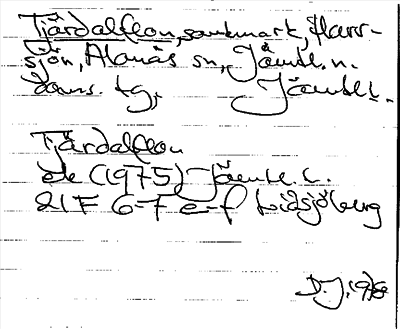 Tjärdalflon, sankmark, Harr-
sjön, Alanäs sn, Jämtl. n.
doms. tg, Jämtl.
Tjärdalflon
ek (1975) Jämtl. l.
21F 6-7 e-f Lidsjöberg
D.J. 1978